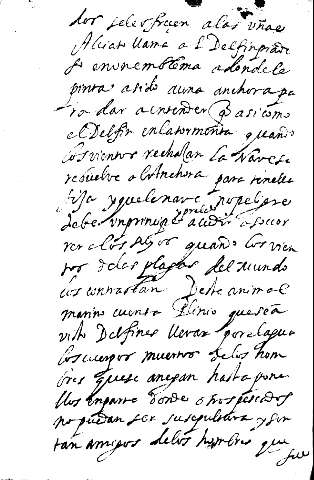 dor se le ofreçen a las vñas
Alciato llama a el Delfin
en vn emblema a donde le
pinta asido a vna anchora pa
ra dar a entender q asi como
el Delfin en la tormenta quando
los vientos rechaçan la Nave se
rebuelve a la Anchora para tenella
fija y que la nave no peligre
debe vn principe a acudir a socor
rer a los suyos quando los vien
tos de las plagas del Mundo
los contrastan Deste animal
marino cuenta Plinio que se a
visto Delfines llevar por el agua
los cuerpos muertos de los hom
bres que se anegan hasta pone
llos en parte donde otros pescados
no puedan ser su sepultura y son
tan amigos de los hombres que